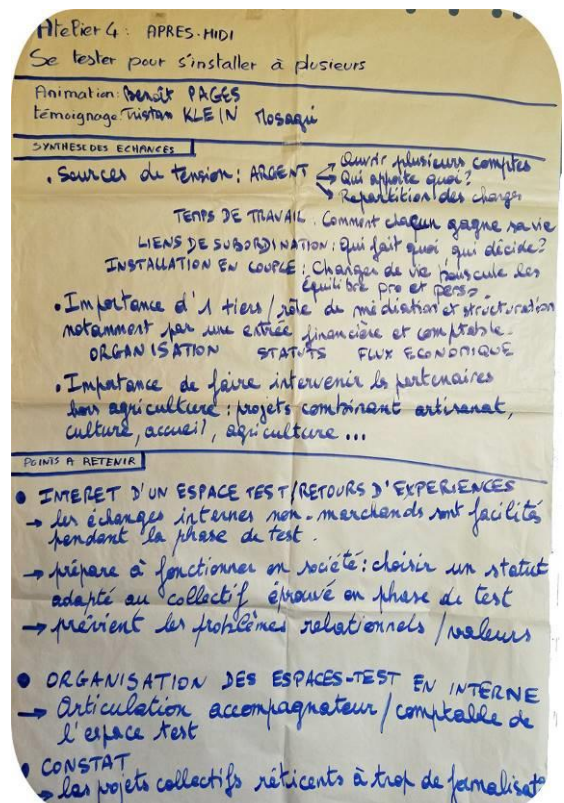 Atelier 4 : APRES-MIDI
Se tester pour s'installer à plusieurs
Animation: Benoît PAGES
témoignage: Tristan KLEIN Mosagri
SYNTHESE DES ECHANGES
. Sources de tension : ARGENT → Ouvrir plusieurs comptes
→ Qui apporte quoi ?
→ Repartition des charges
TEMPS DE TRAVAIL : Comment chacun gagne sa vie
LIENS DE SUBORDINATION : Qui fait quoi qui décide ?
INSTALLATION EN COUPLE : Changer de vie bouscule les
équilibre pro et perso
• Importance d'1 tiers / rôle de médiation et structuration
notamment par une entrée financière et comptable.
ORGANISATION STATUTS FLUX ECONOMIQUE
• Importance de faire intervenir les partenaires
hors agriculture : projets combinant artisanat,
culture, accueil, agriculture ...
POINTS A RETENIR
• INTERET D'UN ESPACE TEST/RETOURS D'EXPERIENCES
→ les échanges internes non-marchands sont facilités
pendant la phase de test.
→ prépare à fonctionner en société : choisir un statut
adapté au collectif éprouvé en phase de test
→ prévient les problèmes relationnels / valeurs
• ORGANISATION DES ESPACES-TEST EN INTERNE
→ Articulation accompagnateur / comptable de
l'espace test
• CONSTAT
→ les projets collectifs réticents à trop de formalisat